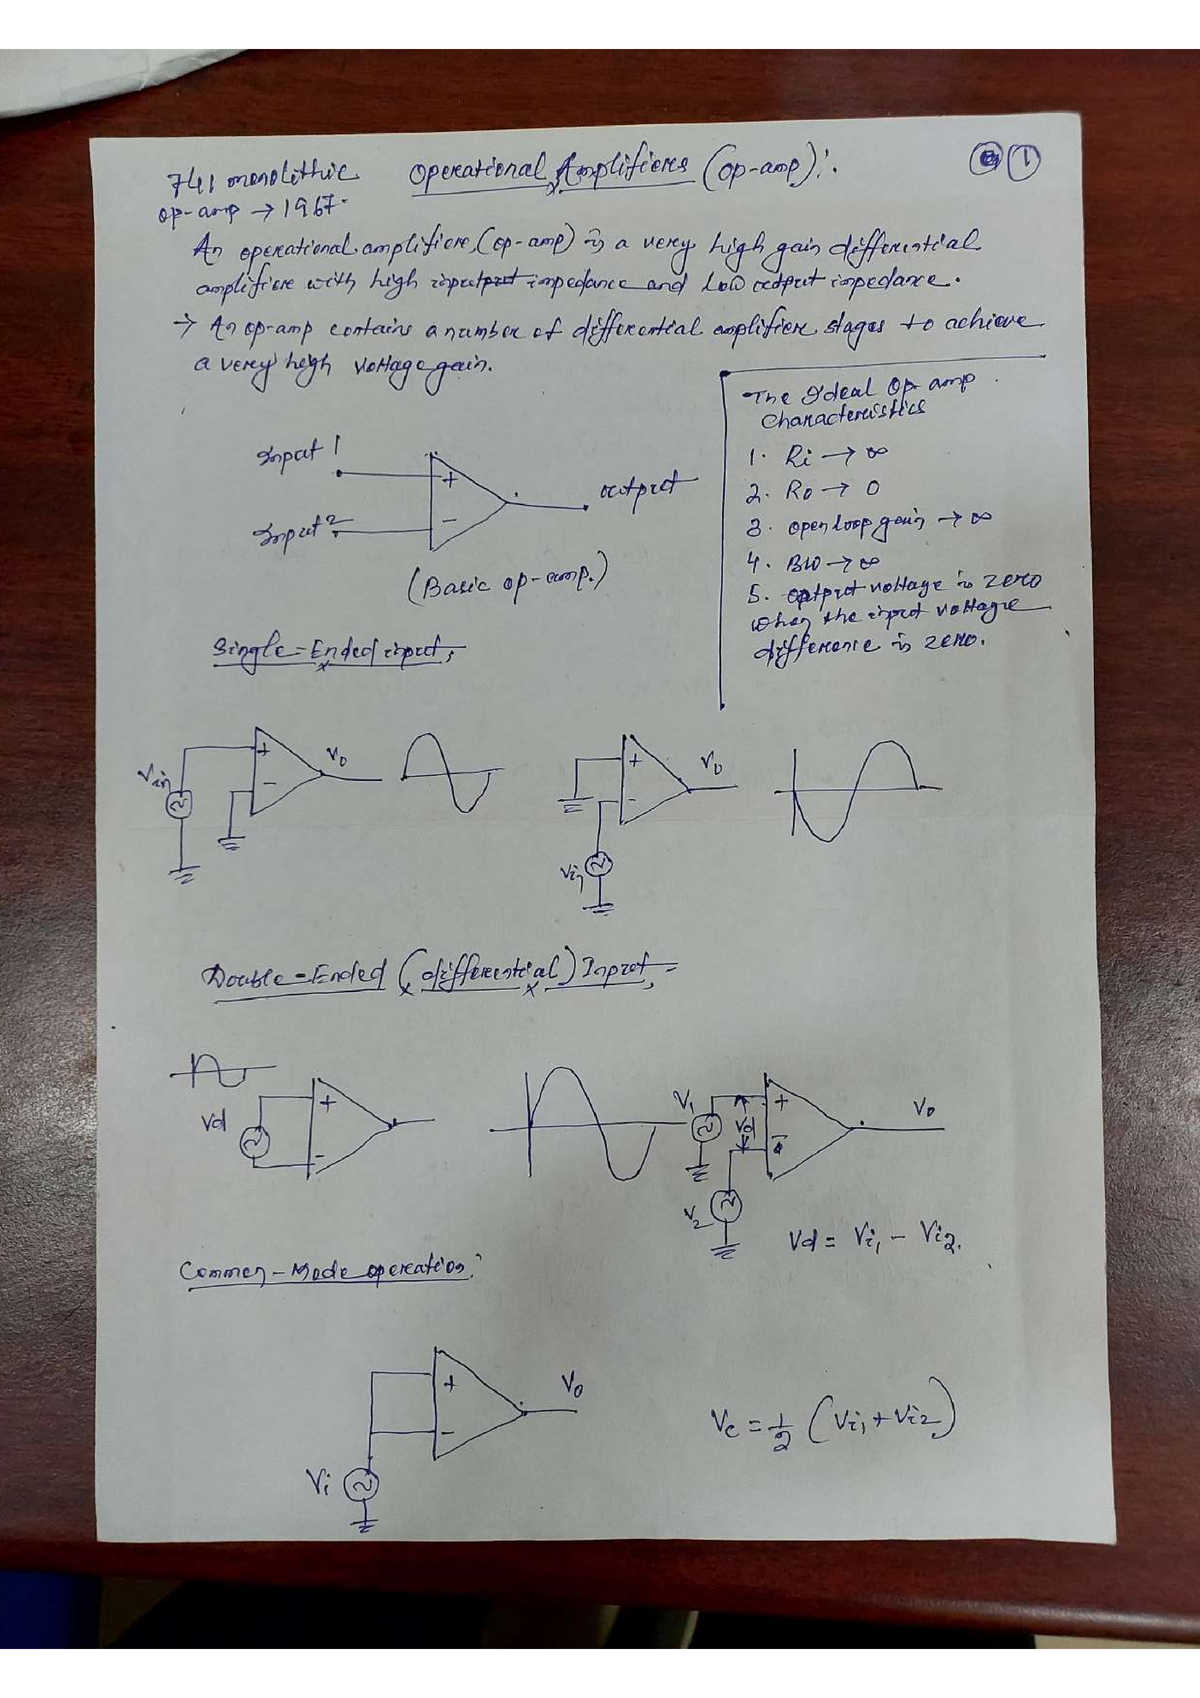 741 monolithic Operational Amplifiers (op-amp): 1
op-amp → 1967.
An operational amplifier, (op-amp) is a very high gain differential
amplifier with high input impedance and low output impedance.
→ An op-amp contains a number of differential amplifier stages to achieve
a very high voltage gain.
The Ideal Op-amp
characteristics
1. Ri → ∞
2. Ro → 0
3. open loop gain → ∞
4. BW → ∞
5. output voltage is zero
when the input voltage
difference is zero.
Input 1
+
output
Input 2
-
(Basic op-amp.)
Single-Ended input:
Vin + - V0
+ - V0
Vin
Double-Ended (differential) Input:
Vd + -
V1 Vd + - V0
V2
Vd = Vi1 - Vi2.
Common-Mode operation:
+ - V0
Vi
Vc = 1/2 (Vi1 + Vi2)